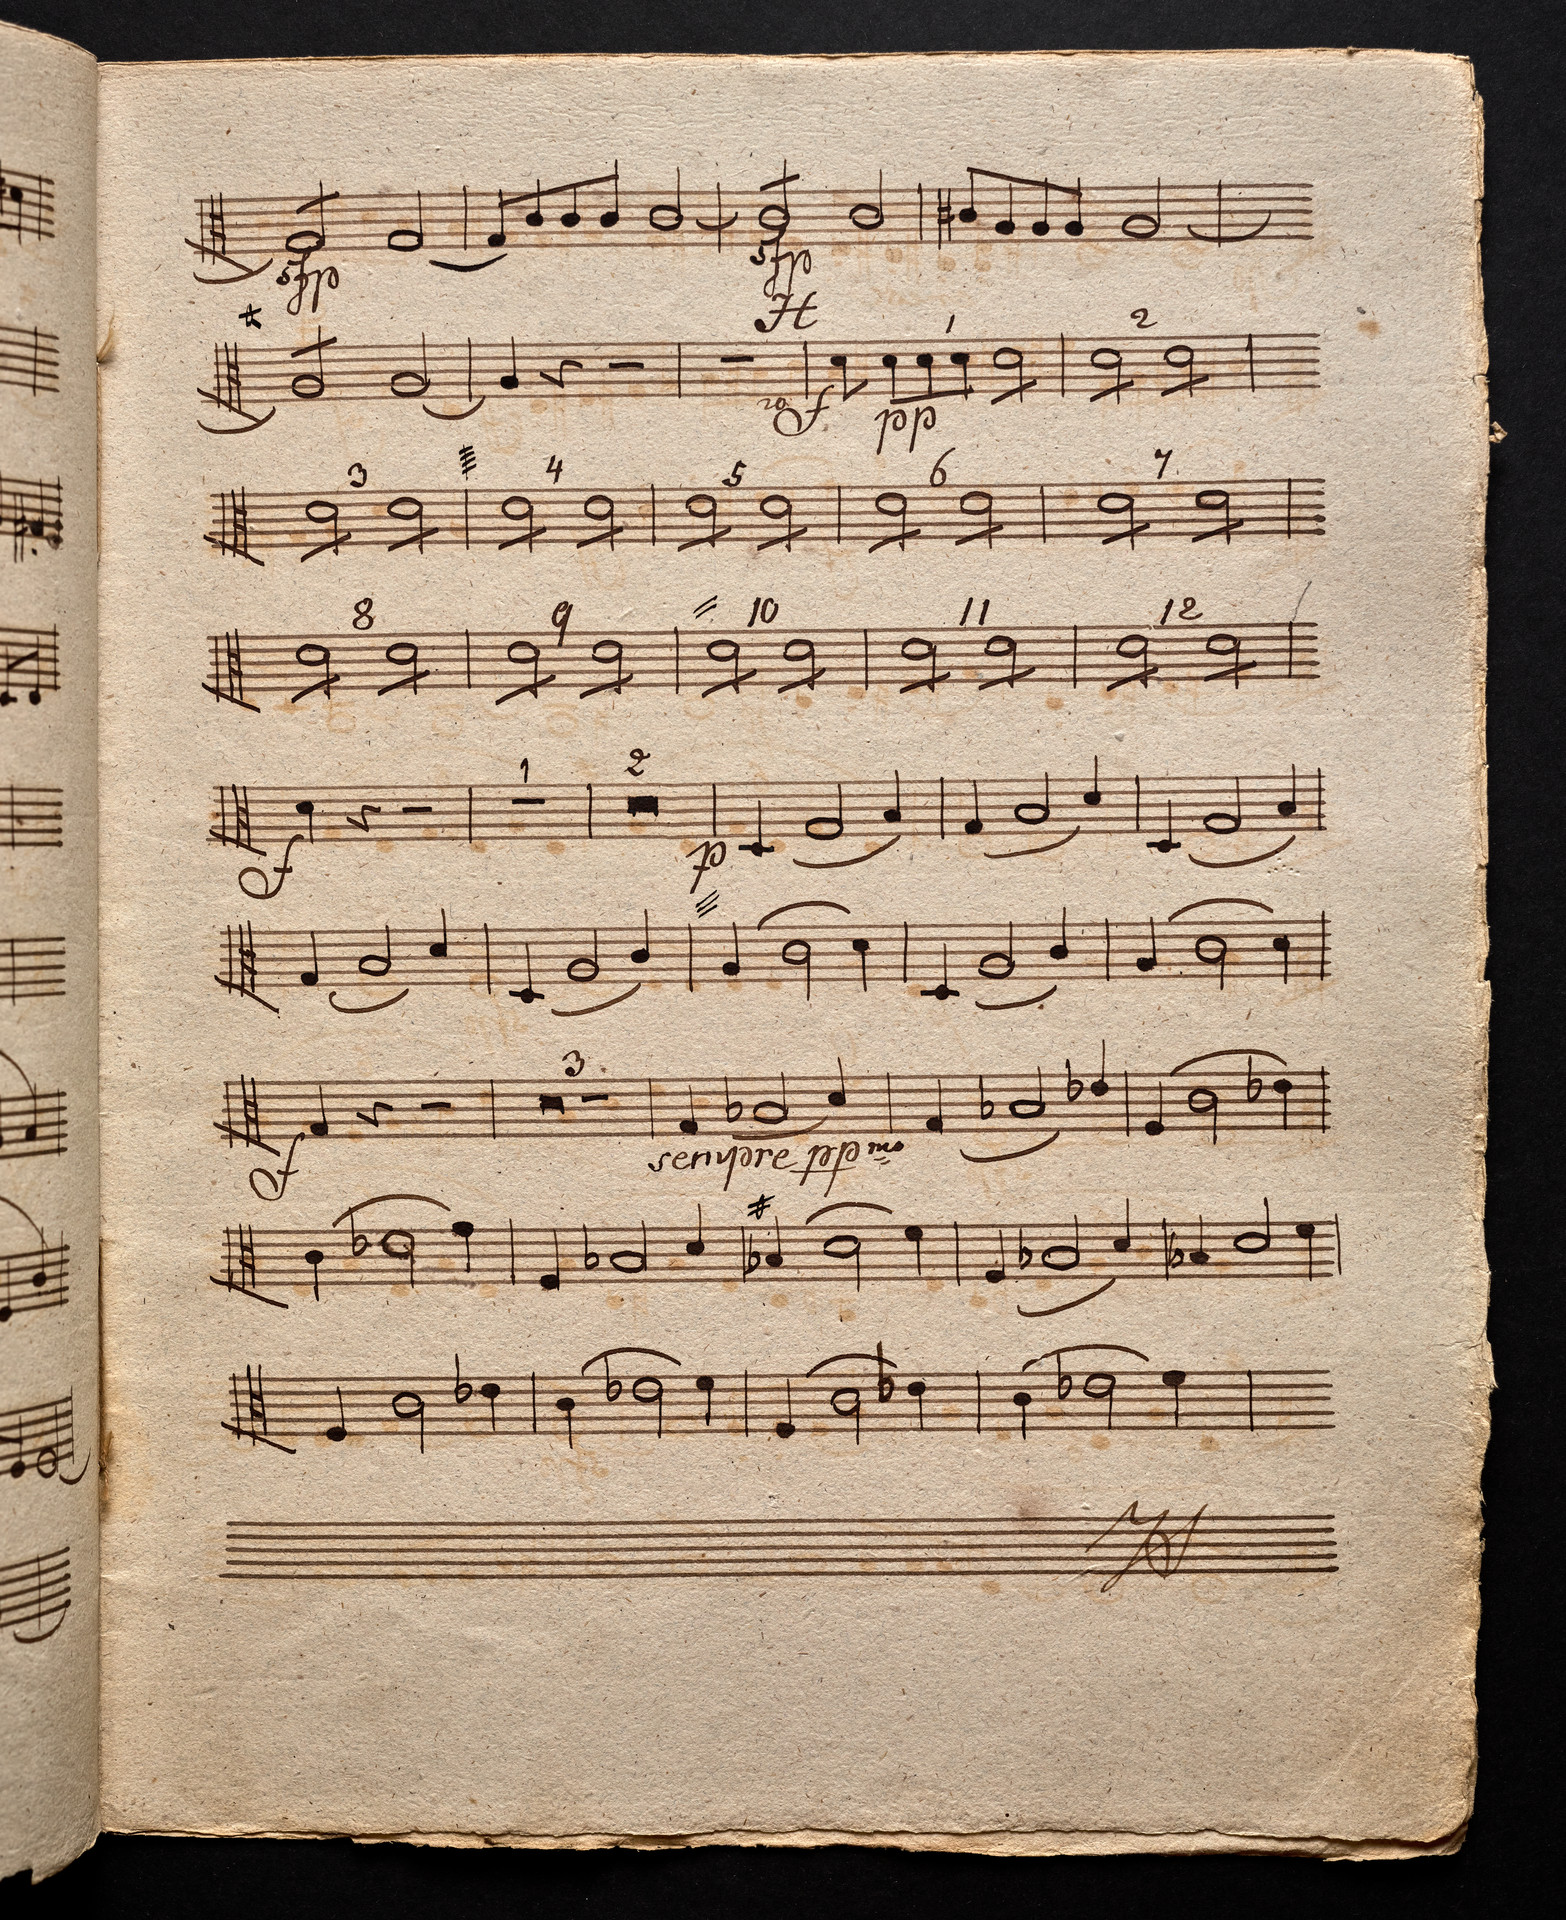 sfp sfp
H
1 2
for f pp
3 4 5 6 7
8 9 10 11 12
1 2
f p
3
f sempre ppmo